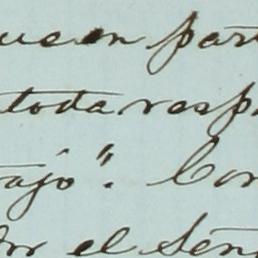 que en par
toda resp
ajo". Con
or el Señ